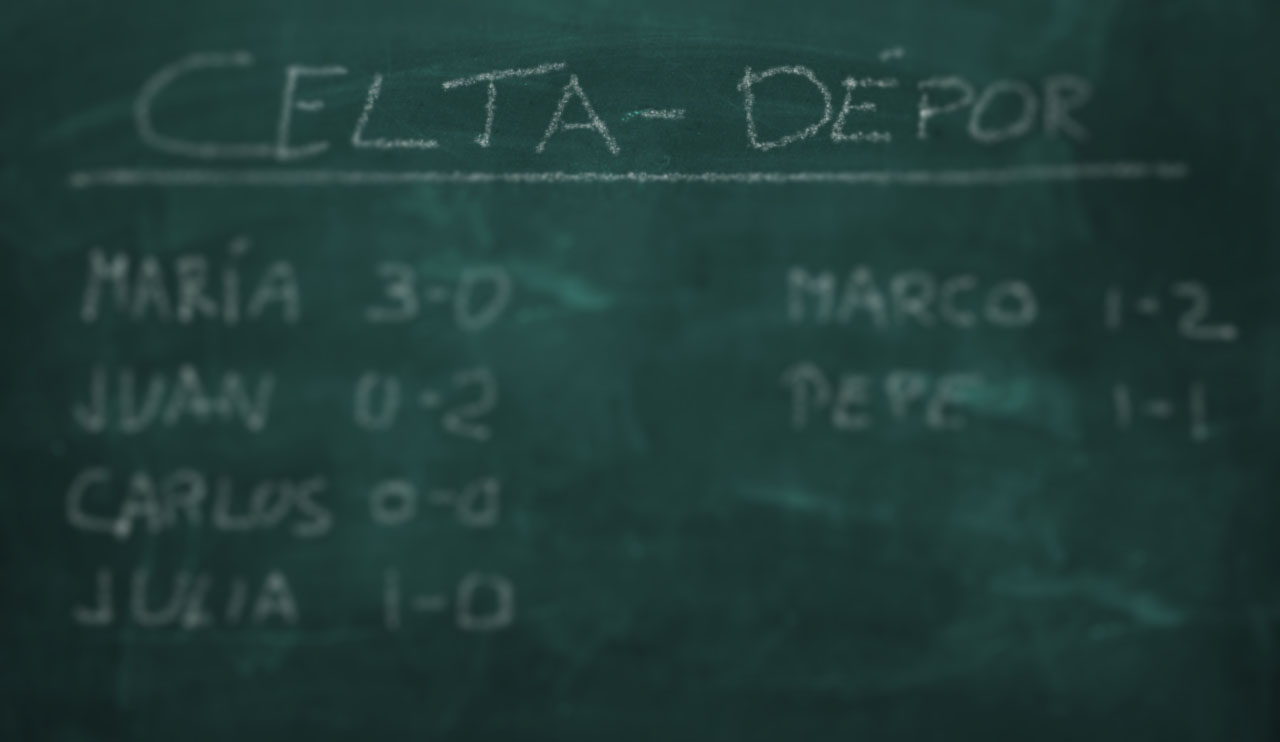 CELTA - DÉPOR
MARÍA 3-0
JUAN 0-2
CARLOS 0-0
JULIA 1-0
MARCO 1-2
PEPE 1-1